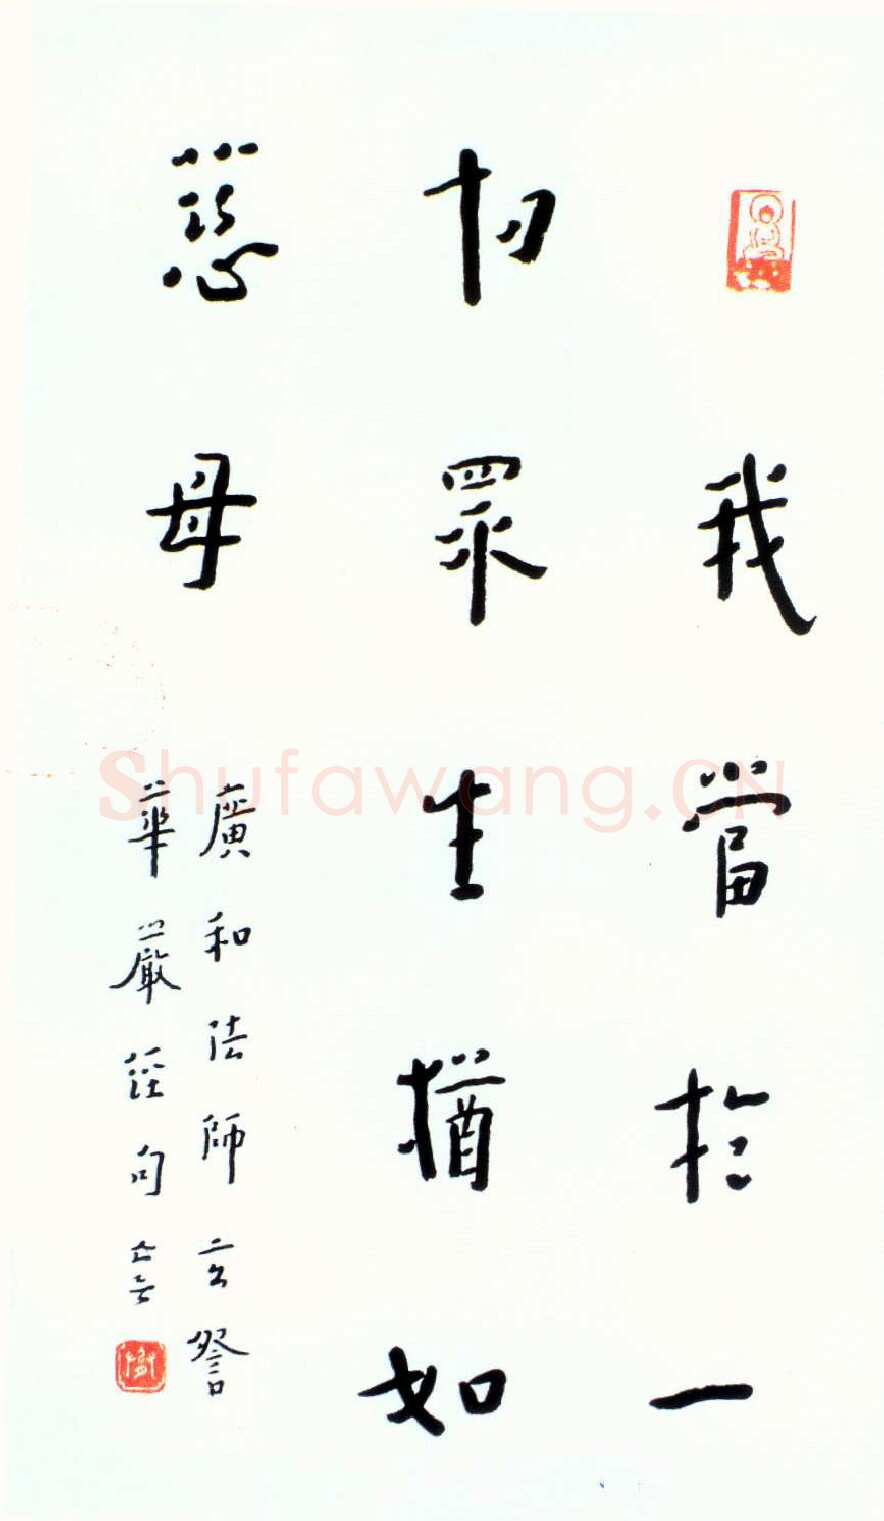 我當於一
切眾生猶如
慈母
廣和法師玄詧
華嚴經句
Shufawang.CN